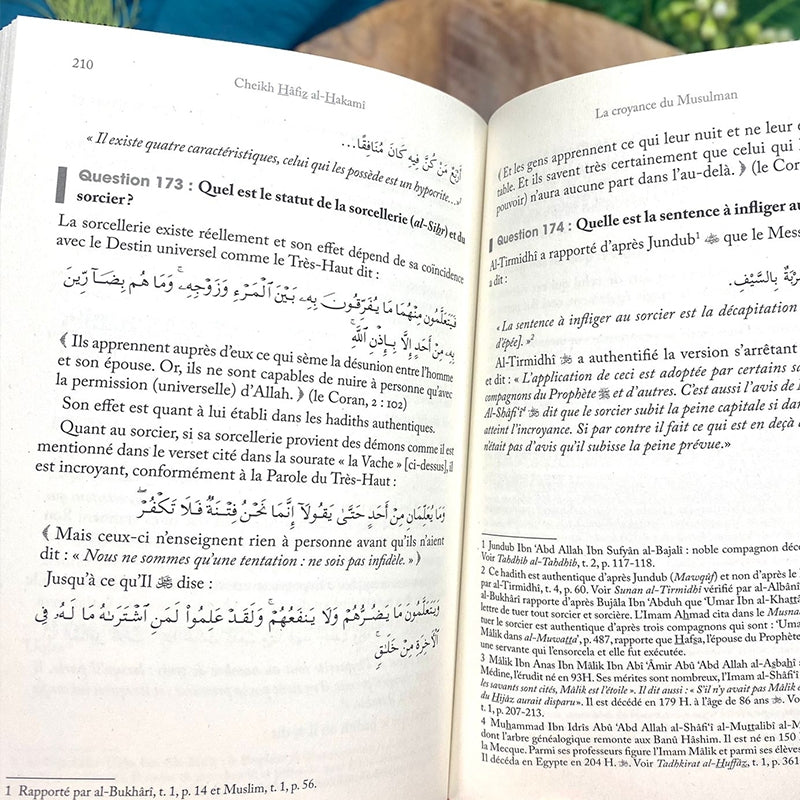 210
Cheikh Hâfiz al-Hakamî
أَرْبَعٌ مَنْ كُنَّ فِيهِ كَانَ مُنَافِقًا...
« Il existe quatre caractéristiques, celui qui les possède est un hypocrite...»¹
Question 173 : Quel est le statut de la sorcellerie (al-Sihr) et du
sorcier ?
La sorcellerie existe réellement et son effet dépend de sa coïncidence
avec le Destin universel comme le Très-Haut dit :
فَيَتَعَلَّمُونَ مِنْهُمَا مَا يُفَرِّقُونَ بِهِ بَيْنَ الْمَرْءِ وَزَوْجِهِ ۚ وَمَا هُم بِضَارِّينَ
بِهِ مِنْ أَحَدٍ إِلَّا بِإِذْنِ اللَّهِ ۚ
﴾ Ils apprennent auprès d'eux ce qui sème la désunion entre l'homme
et son épouse. Or, ils ne sont capables de nuire à personne qu'avec
la permission (universelle) d'Allah. ﴿ (le Coran, 2 : 102)
Son effet est quant à lui établi dans les hadiths authentiques.
Quant au sorcier, si sa sorcellerie provient des démons comme il est
mentionné dans le verset cité dans la sourate « la Vache » [ci-dessus], il
est incroyant, conformément à la Parole du Très-Haut :
وَمَا يُعَلِّمَانِ مِنْ أَحَدٍ حَتَّىٰ يَقُولَا إِنَّمَا نَحْنُ فِتْنَةٌ فَلَا تَكْفُرْ ۖ
﴾ Mais ceux-ci n'enseignent rien à personne avant qu'ils n'aient
dit : « Nous ne sommes qu'une tentation : ne sois pas infidèle. » ﴿
Jusqu'à ce qu'Il ﷻ dise :
وَيَتَعَلَّمُونَ مَا يَضُرُّهُمْ وَلَا يَنفَعُهُمْ ۚ وَلَقَدْ عَلِمُوا لَمَنِ اشْتَرَاهُ مَا لَهُ فِي
الْآخِرَةِ مِنْ خَلَاقٍ ۚ
1 Rapporté par al-Bukhârî, t. 1, p. 14 et Muslim, t. 1, p. 56.
La croyance du Musulman
﴾ Et les gens apprennent ce qui leur nuit et ne leur
table. Et ils savent très certainement que celui qui
pouvoir) n'aura aucune part dans l'au-delà. ﴿ (le Cora
Question 174 : Quelle est la sentence à infliger au
Al-Tirmidhî a rapporté d'après Jundub¹ que le Mess
a dit :
بِالسَّيْفِ.
« La sentence à infliger au sorcier est la décapitation
d'épée]. »²
Al-Tirmidhî a authentifié la version s'arrêtant
et dit : « L'application de ceci est adoptée par certains sa
compagnons du Prophète ﷺ et d'autres. C'est aussi l'avis de
Al-Shâfi'î⁴ dit que le sorcier subit la peine capitale si dan
atteint l'incroyance. Si par contre il fait ce qui est en deçà
n'était pas d'avis qu'il subisse la peine prévue.»
1 Jundub Ibn 'Abd Allah Ibn Sufyân al-Bajalî : noble compagnon décé
Voir Tahdhîb al-Tahdhîb, t. 2, p. 117-118.
2 Ce hadith est authentique d'après Jundub (Mawqûf) et non d'après le
par al-Tirmidhî, t. 4, p. 60. Voir Sunan al-Tirmidhî vérifié par al-Albânî
al-Bukhârî rapporte d'après Bujâla Ibn 'Abduh que 'Umar Ibn al-Khattâ
lettre de tuer tout sorcier et sorcière. L'Imam Ahmad cita dans le Musna
tuer le sorcier est authentique d'après trois compagnons qui sont : 'Uma
Mâlik dans al-Muwatta', p. 487, rapporte que Hafsa, l'épouse du Prophète
une servante qui l'ensorcela et elle fut exécutée.
3 Mâlik Ibn Anas Ibn Mâlik Ibn Abî 'Âmir Abû 'Abd Allah al-Asbahî
Médine, l'érudit né en 93H. Ses mérites sont nombreux, l'Imam al-Shâfi'î
les savants sont cités, Mâlik est l'étoile ». Il dit aussi : « S'il n'y avait pas Mâlik
du Hijâz aurait disparu». Il est décédé en 179 H. à l'âge de 86 ans
t. 1, p. 207-213.
4 Muhammad Ibn Idrîs Abû 'Abd Allah al-Shâfi'î al-Muttalibî al-M
dont l'arbre généalogique remonte aux Banû Hâshim. Il est né en 150
la Mecque. Parmi ses professeurs figure l'Imam Mâlik et parmi ses élèves
Il décéda en Egypte en 204 H. Voir Tadhkirat al-Huffâz, t. 1, p. 361